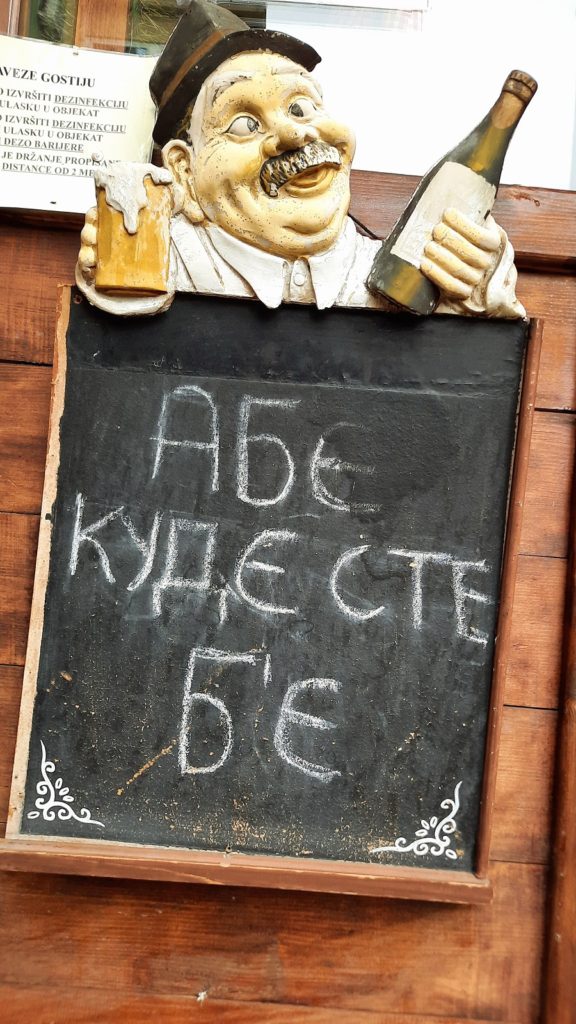 AVEZE GOSTIJU
O IZVRŠITI DEZINFEKCIJU
ULASKU U OBJEKAT
O IZVRŠITI DEZINFEKCIJU
ULASKU U OBJEKAT
DEZO BARIJERE
JE DRŽANJE
DISTANCE OD 2
АБЕ
КУДЕ СТЕ
Б'Е